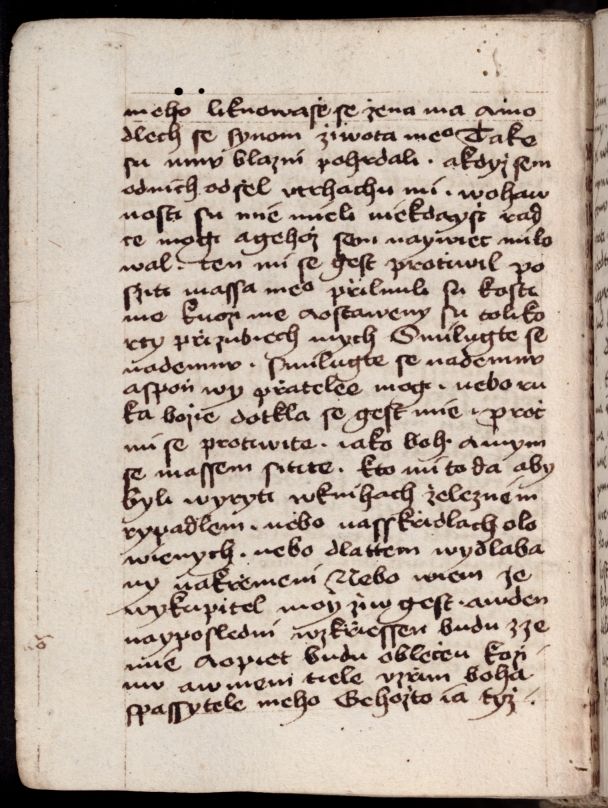 meho liknowasse se zena ma amo
dlech se synom ziwota meo Take
su mnv blazni pohrdali · akdyz sem
odnich odssel vtrhachu mi · wohaw
nosti su mne mieli niekdayssi rad
ce mogi agehoz sem naywiec milo
wal · ten mi se gest protiwil po
sziti massa meo přilnuli su kosti
me kuozi me aostaweny su toliko
rty przizubiech mych Smilugte se
nademnv · smilugte se nademnv
aspoň wy přatelee mogi · nebo ru
ka bozie dotkla se gest mne · proč
mi se protiwite · iako boh · amym
se massem sitite · kto mi to da aby
byli wyryti wknihach železnem
rypadlem · nebo nasskridlach olo
wienych · nebo dlattem wydlaba
ny nakřemeni Nebo wiem ze
wykupitel moy žiw gest · awden
nayposledni wzkřiessen budu zze
mie aopiet budu oblečen koži
mv awmem tiele vzrim boha
spassytele meho Gehožto ia tyž